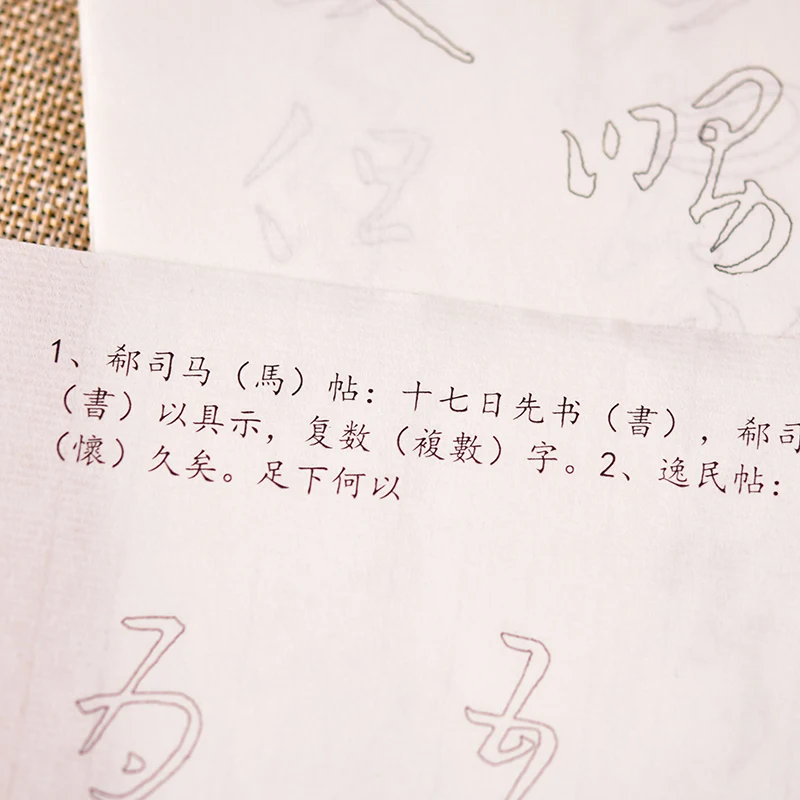 1、郗司马（馬）帖：十七日先书（書），郗司
（書）以具示，复数（複數）字。2、逸民帖：
（懷）久矣。足下何以